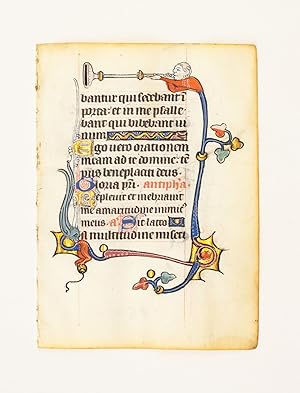 bantur qui sedebant ĩ
porta: et in me psalle
bant qui bibebant ui
num
Ego uero orationem
meam ad te domine: tē
pus beneplaciti deus
Gloria pri. antipha.
Repleuit et inebriauit
me amaritudine inimic
meus. a Dic lacto
A multitudine miseri